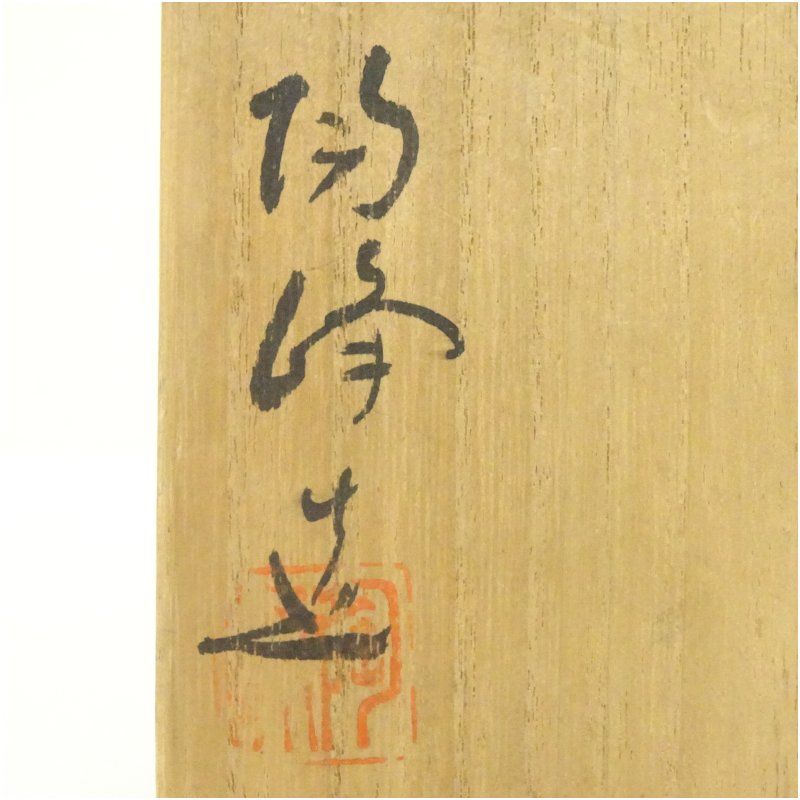 陶峰造